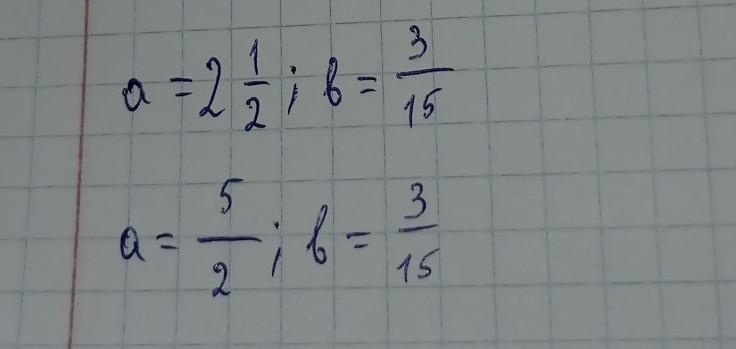 a = 2 1/2 ; b = 3/15
a = 5/2 ; b = 3/15